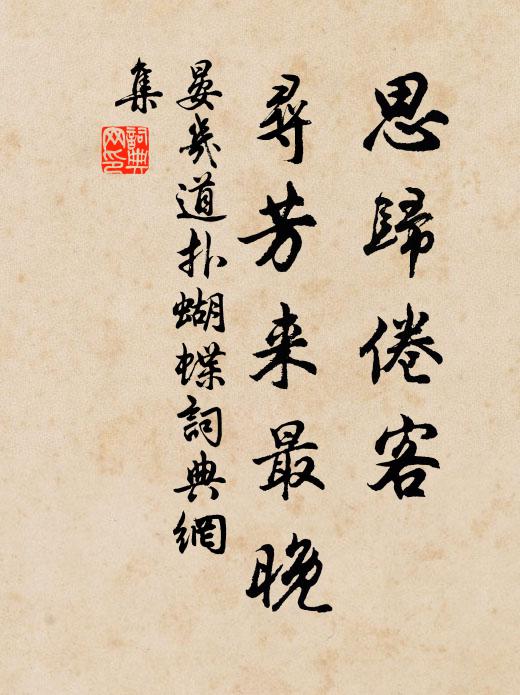 思歸倦客
尋芳来最晚
晏幾道扑蝴蝶詞典網
集
詞典
网印